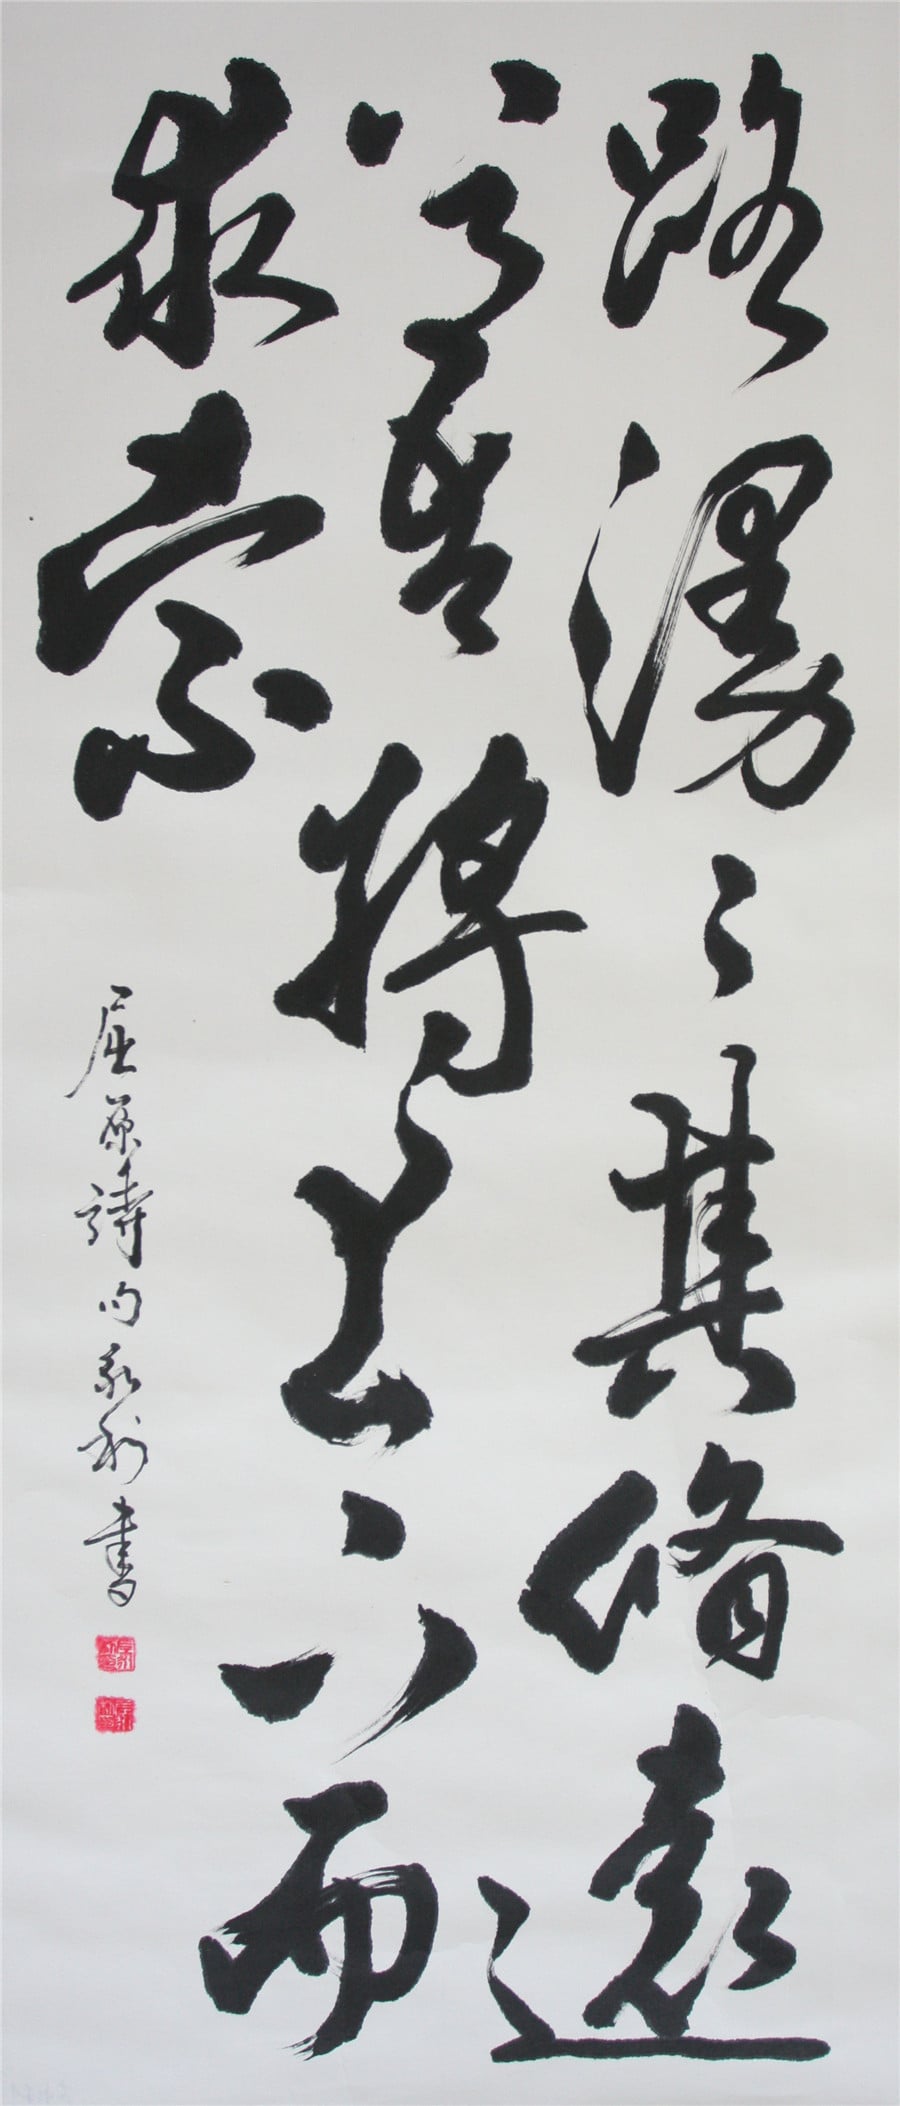 路漫々其修遠
兮吾將上下而
求索
屈原詩句永利書